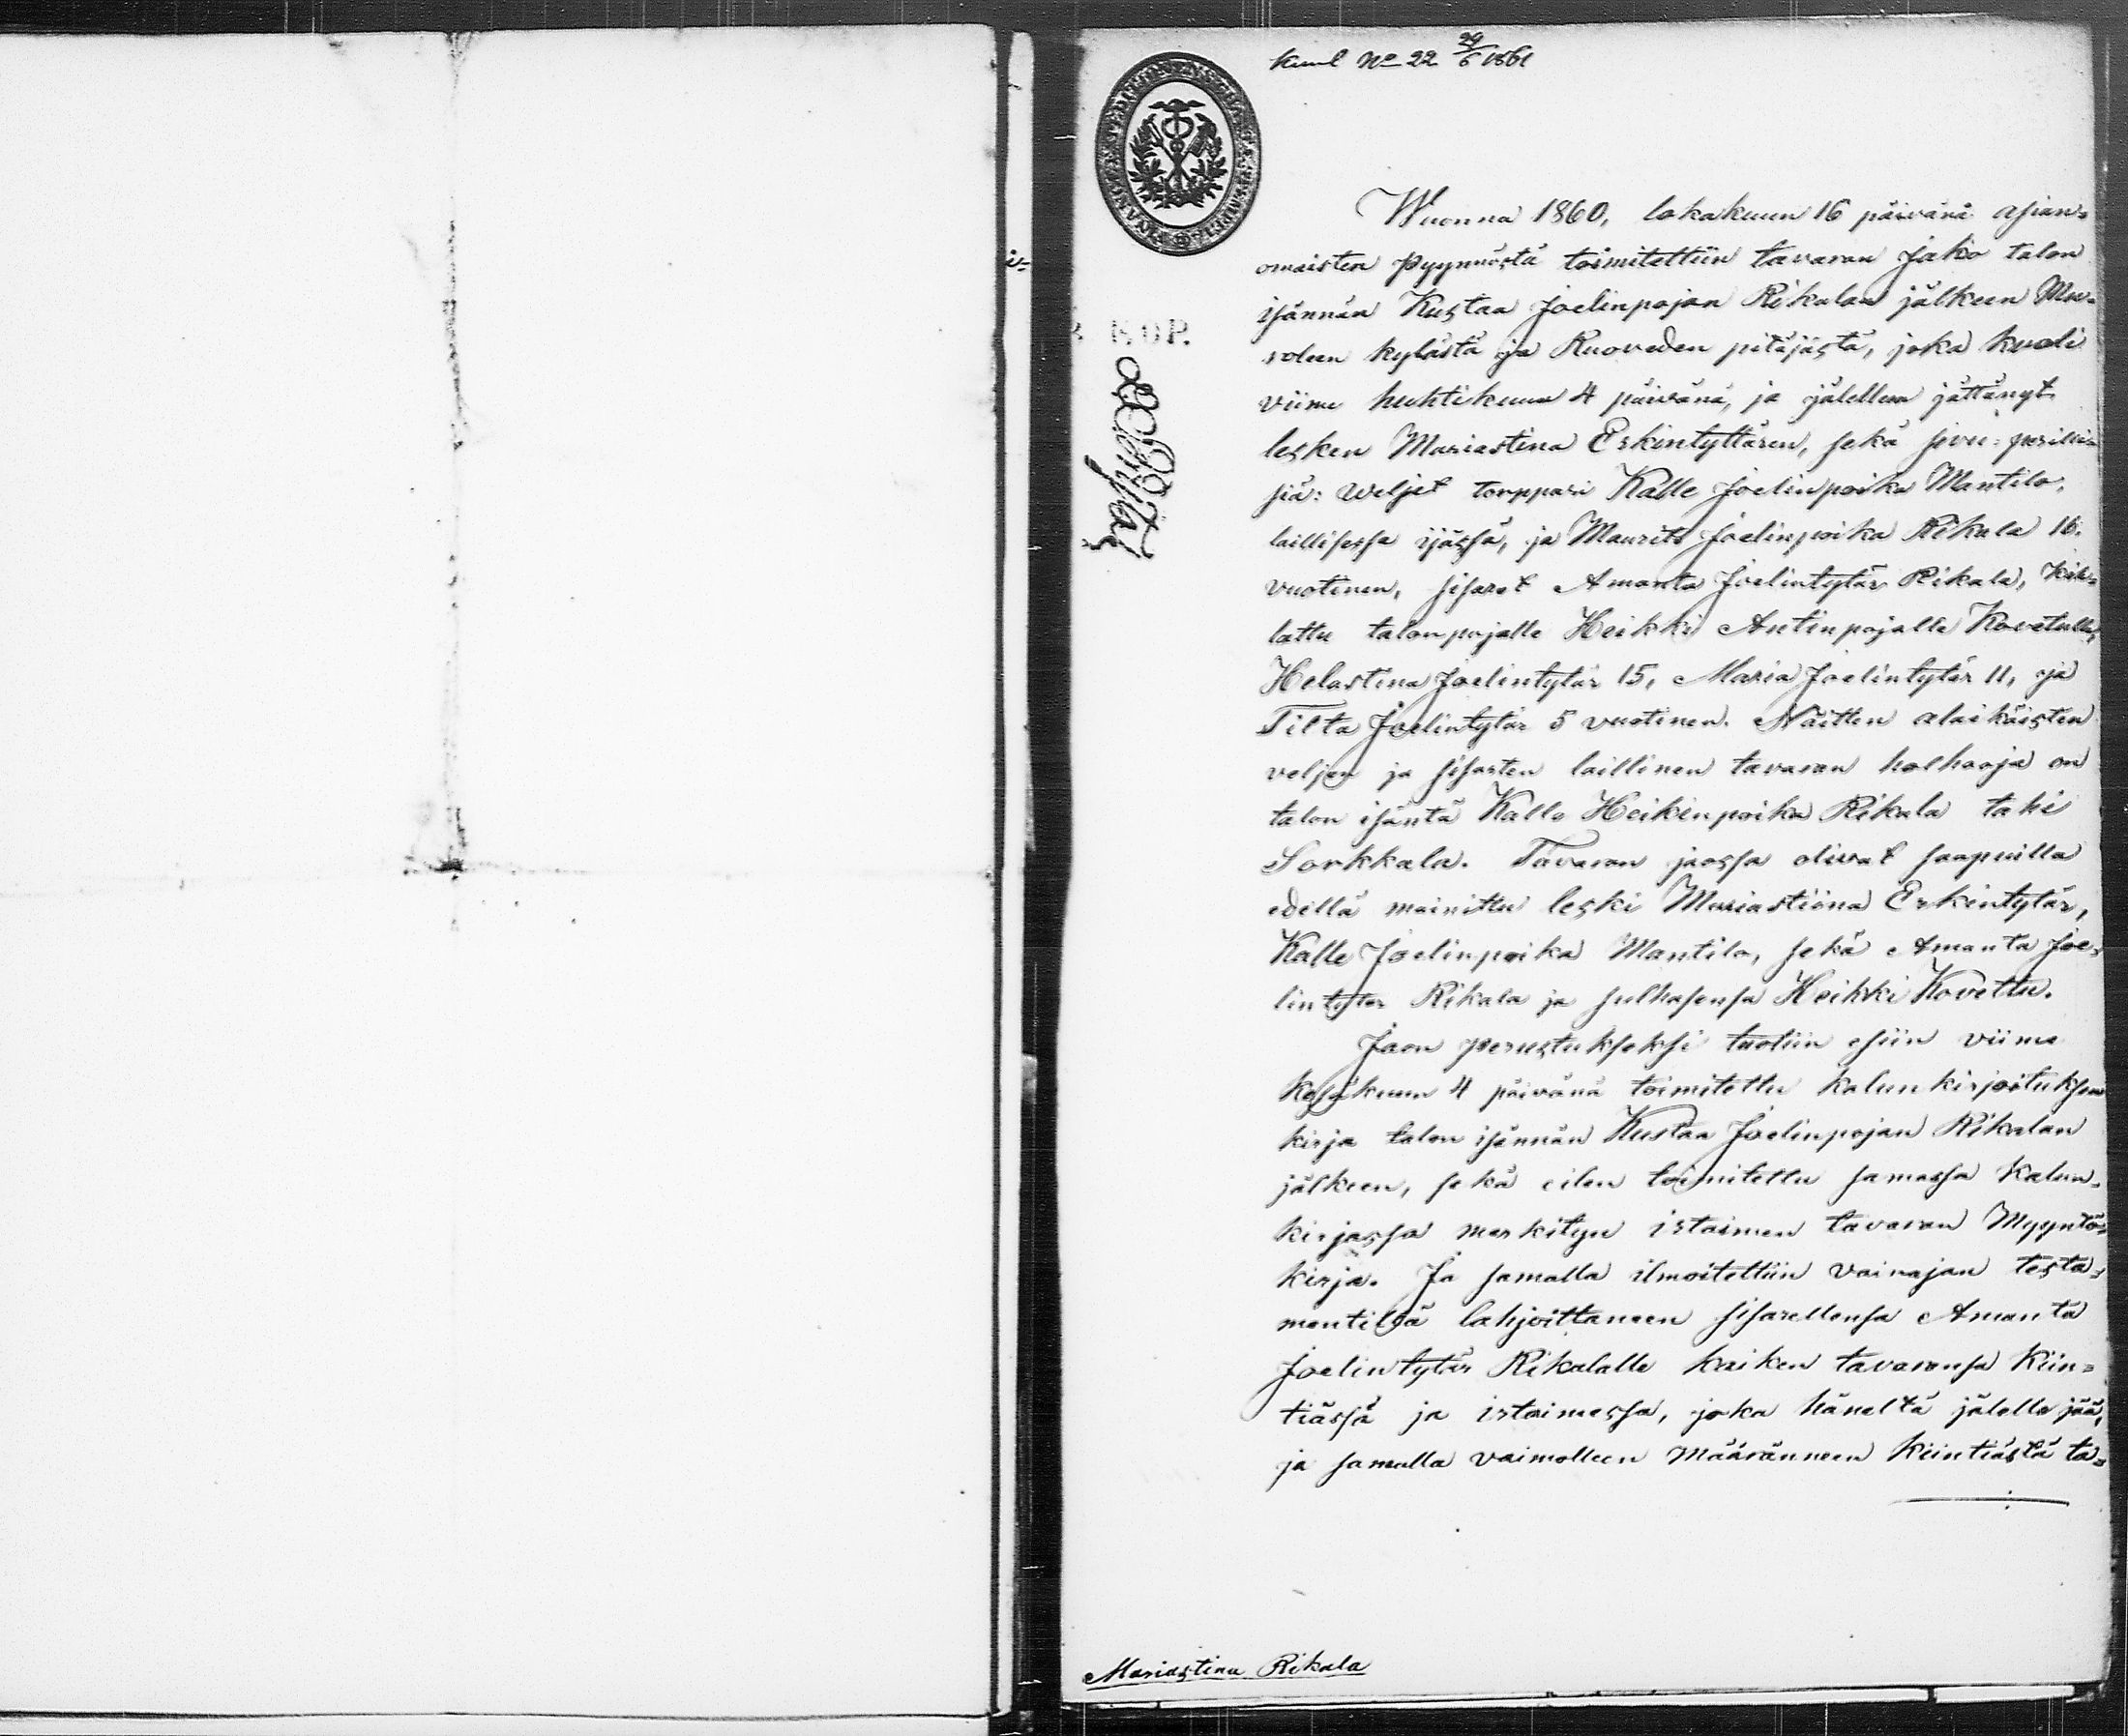 kuul No 22 29/6 1861
Wuonna 1860, lokakuun 16 päivänä asian=
omaisten pyynnöstä toimitettiin tavaran jako talon
isännän Kustaa Joelinpojan Rikalan jälkeen Mu-
roleen kylästä ja Ruoveden pitäjästä, joka kuoli
viime huhtikuun 4 päivänä, ja jälellensä jättänyt
lesken Mariastina Erkintyttären, sekä sivu=perilli=
siä: weljet torppari Kalle Joelinpoika Mantila,
laillisessa ijässä, ja Maurits Joelinpoika Rikala 16.
vuotinen, sisaret Amanta Joelintytär Rikala, kih=
lattu talonpojalle Heikki Antinpojalle Kovetulle,
Helastina Joelintytär 15, Maria Joelintytär 11, ja
Tilta Joelintytär 5 vuotinen. Näitten alaikäisten
veljen ja sisarten laillinen tavaran holhooja on
talon isäntä Kalle Heikinpoika Rikala tahi
Sorkkala. Tavaran jaossa olivat saapuilla
edellä mainittu leski Mariastiina Erkintytär,
Kalle Joelinpoika Mantila, sekä Amanta Joe=
lintytär Rikala ja sulhasensa Heikki Kovettu.
Jaon perustukseksi tuotiin esiin viime
kesäkuun 4 päivänä toimitettu kalunkirjoituksen
kirja talon isännän Kustaa Joelinpojan Rikalan
jälkeen, sekä eilen toimitettu samassa kalun=
kirjassa merkityn istaimen tavaran Myyntö=
kirja. Ja samalla ilmoitettiin vainajan testa=
mentissä lahjoittaneen sisarellensa Amanta
Joelintytär Rikalalle kaiken tavaransa kiin=
tiässä ja istaimessa, joka häneltä jälelle jää,
ja samalla vaimolleen määränneen kiintiästä ta=
KOP.
Mariastina Rikala